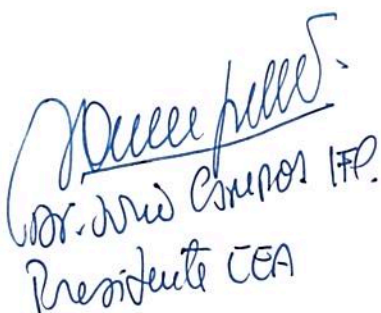 Dr. Julio Campos IFP.
Presidente CEA